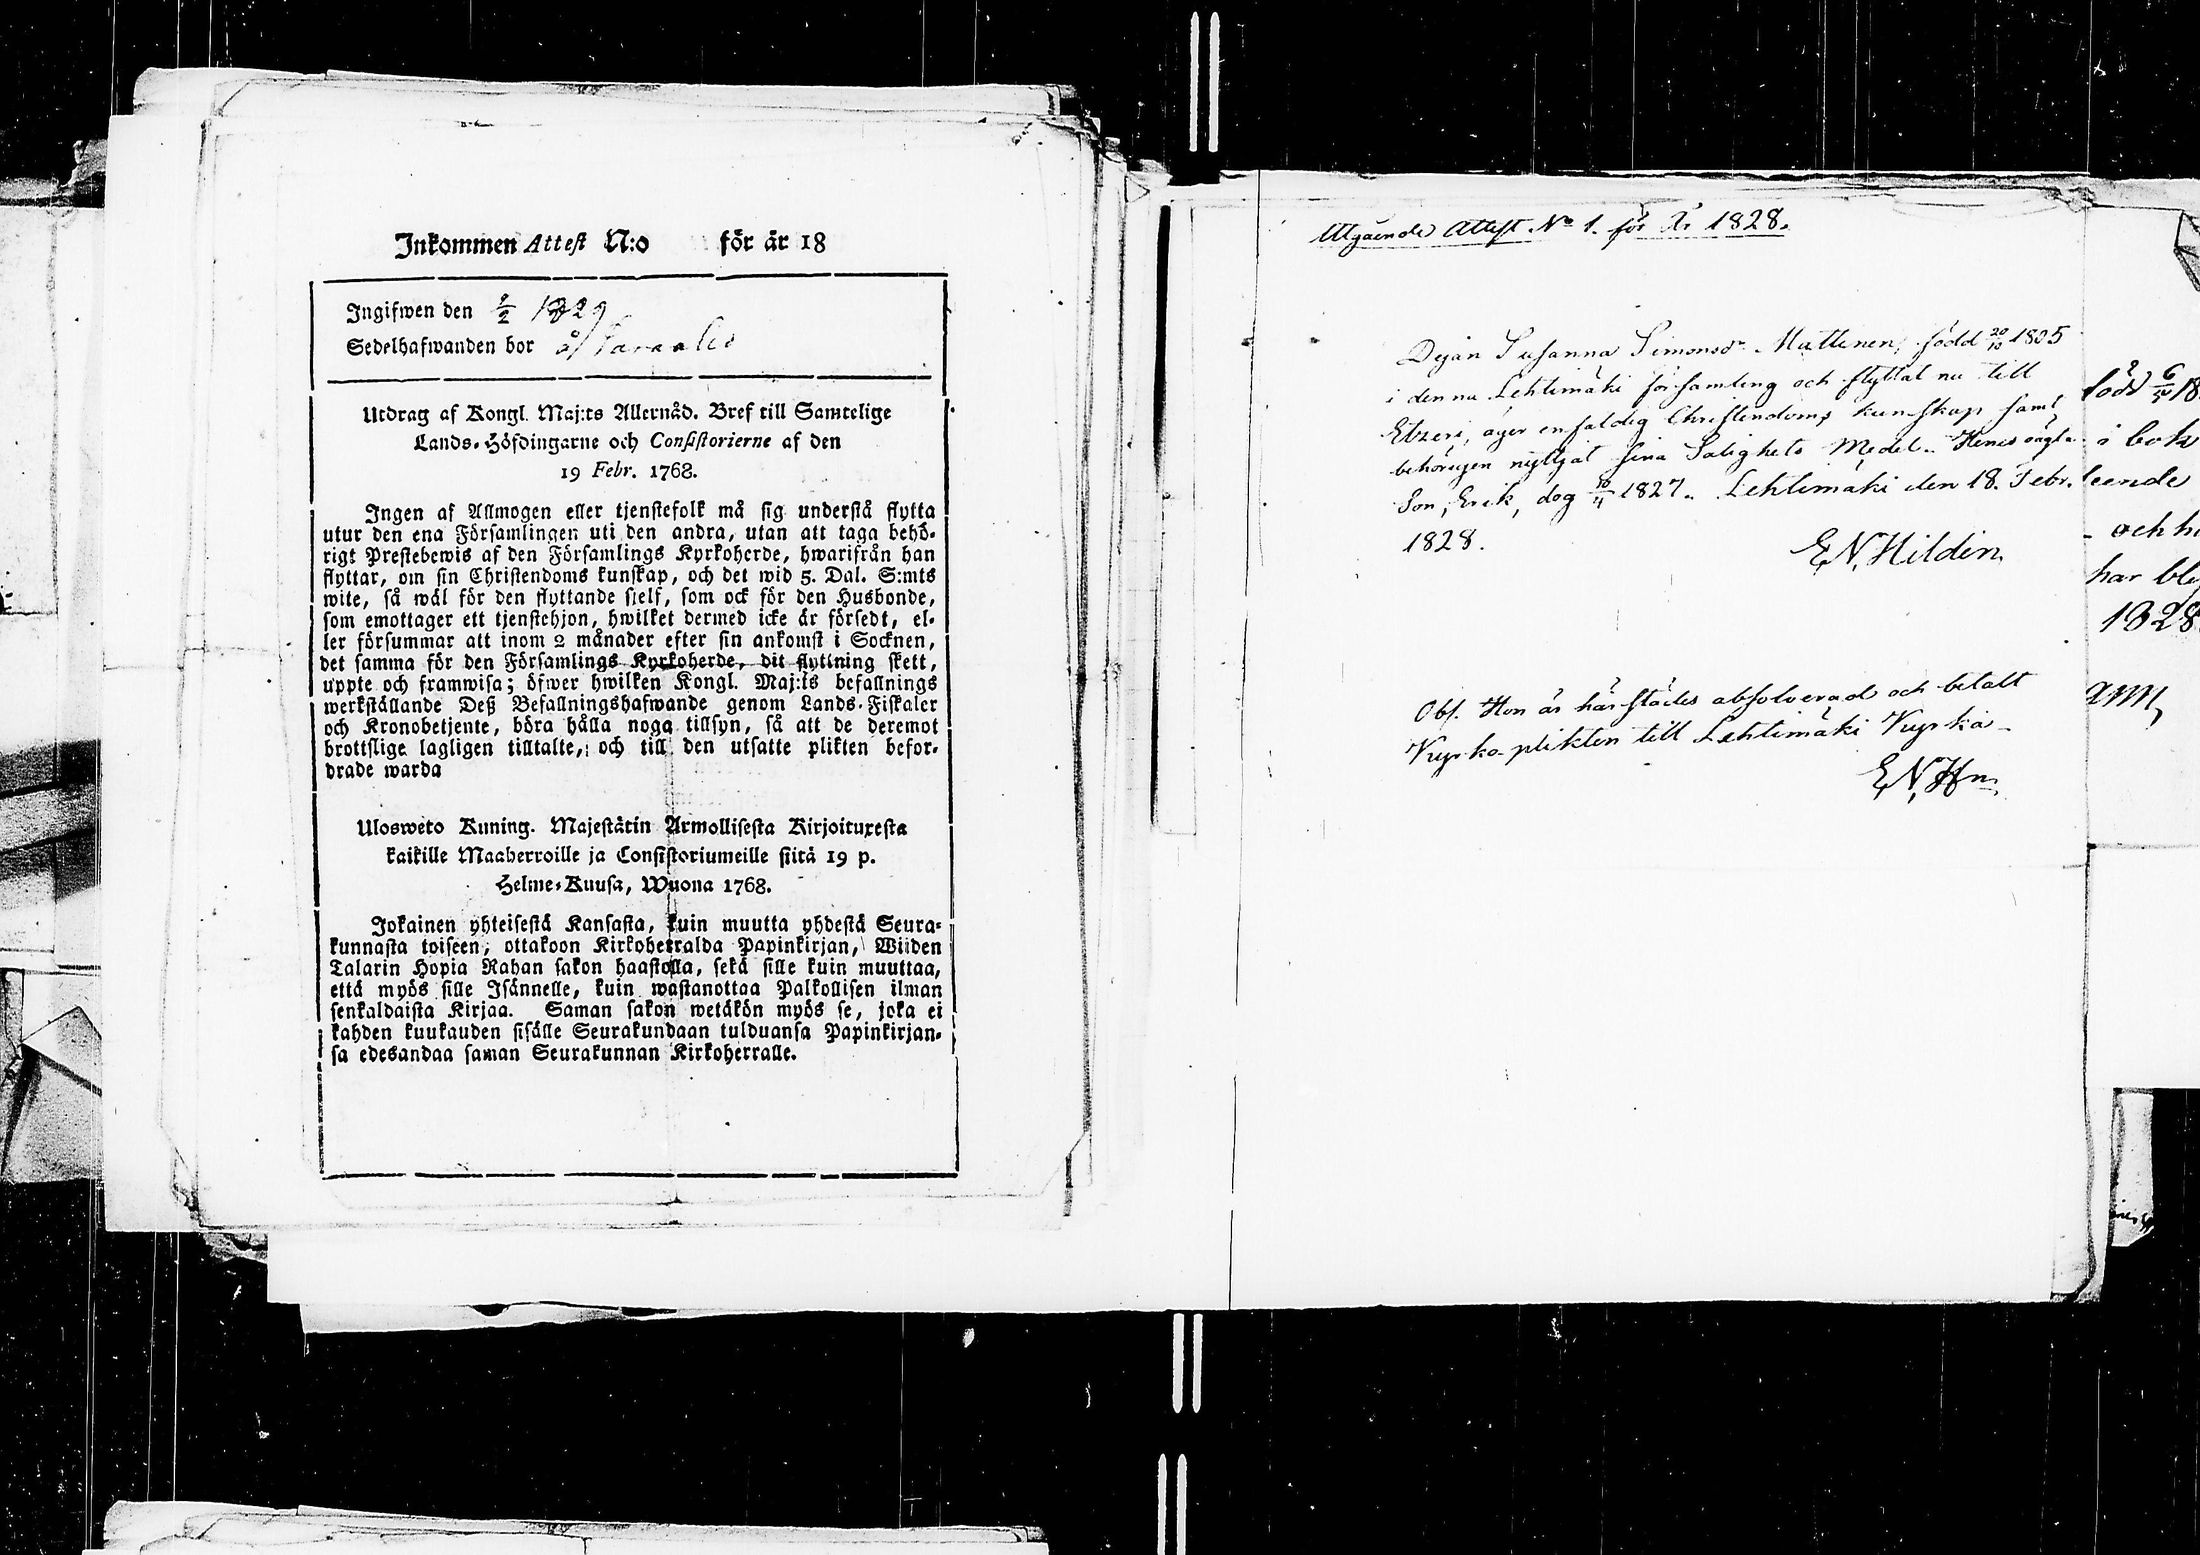 Inkommen Attest N:o för år 18
Ingifwen den 2/2 1829
Sedelhafwanden bor
Utdrag af Kongl. Maj:ts Allernåd. Bref till Samtelige
Lands-Höfdingarne och Consistorierne af den
19 Febr. 1768.
Ingen af Allmogen eller tjenstefolk må sig understå flytta
utur den ena Församlingen uti den andra, utan att taga behö-
rigt Prestebewis af den Församlings Kyrkoherde, hwarifrån han
flyttar, om sin Christendoms kunskap, och det wid 5. Dal. S:mts
wite, så wäl för den flyttande sjelf, som ock för den Husbonde,
som emottager ett tjenstehjon, hwilket dermed icke är försedt, el-
ler försummar att inom 2 månader efter sin ankomst i Socknen,
det samma för den Församlings Kyrkoherde, dit flyttning skett,
uppte och framwisa; öfwer hwilken Kongl. Maj:ts befallnings
werkställande Deß Befallningshafwande genom Lands-Fiskaler
och Kronobetjente, böra hålla noga tillsyn, så att de deremot
brottslige lagligen tilltalte, och till den utsatte plikten befor-
drade warda
Ulosweto Kuning. Majestätin Armollisesta Kirjoituxesta
kaikille Maaherroille ja Consistoriumeille siitä 19 p.
Helme-Kuusa, Wuona 1768.
Jokainen yhteisestä Kansasta, kuin muutta yhdestä Seura-
kunnasta toiseen, ottakoon Kirkoherralda Papinkirjan, Wiiden
Talarin Hopia Rahan sakon haastolla, sekä sille kuin muuttaa,
että myös sille Isännelle, kuin wastanottaa Palkollisen ilman
senkaldaista Kirjaa. Saman sakon wetäkön myös se, joka ei
kahden kuukauden sisälle Seurakundaan tulduansa Papinkirjan-
sa edesandaa saman Seurakunnan Kirkoherralle.
Utgående Attest No 1. för År 1828.
Pigan Susanna Simonsdr Mattinen, född 20/10 1805
i denna Lehtimäki församling och flyttat nu till
Etzeri, äger enfaldig Christendoms kunskap samt
behörigen nyttjat sina Salighets Medel. Henes oägta
Son, Erik, dog 10/11 1827. Lehtimäki den 18. Febr.
1828.
E. N. Hildén
Obs. Hon är härstädes absolverad och betalt
Kyrkoplikten till Lehtimäki Kyrka
E. N. Hn
född 6/5 18
i bok
leende
och h
har ble
1828